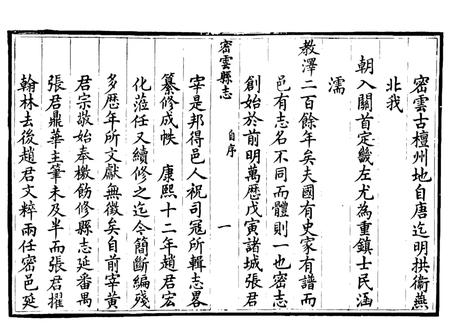 密雲古檀州地自唐迄明拱衛燕
北我
朝入關首定畿左尤為重鎮士民涵
濡
教澤二百餘年矣夫國有史家有譜而
邑有志名不同而體則一也密志
創始於前明萬歷戊寅諸城張君
密雲縣志
自序
一
宰是邦得邑人祝司寇所輯志畧
纂修成帙 康熙十二年趙君宏
化蒞任又續修之迄今簡斷編殘
多歷年所文獻無徵矣自前宰黃
君宗敬始奉檄飭修縣志延番禺
張君鼎華主筆未及半而張君擢
翰林去後趙君文粹兩任密邑延